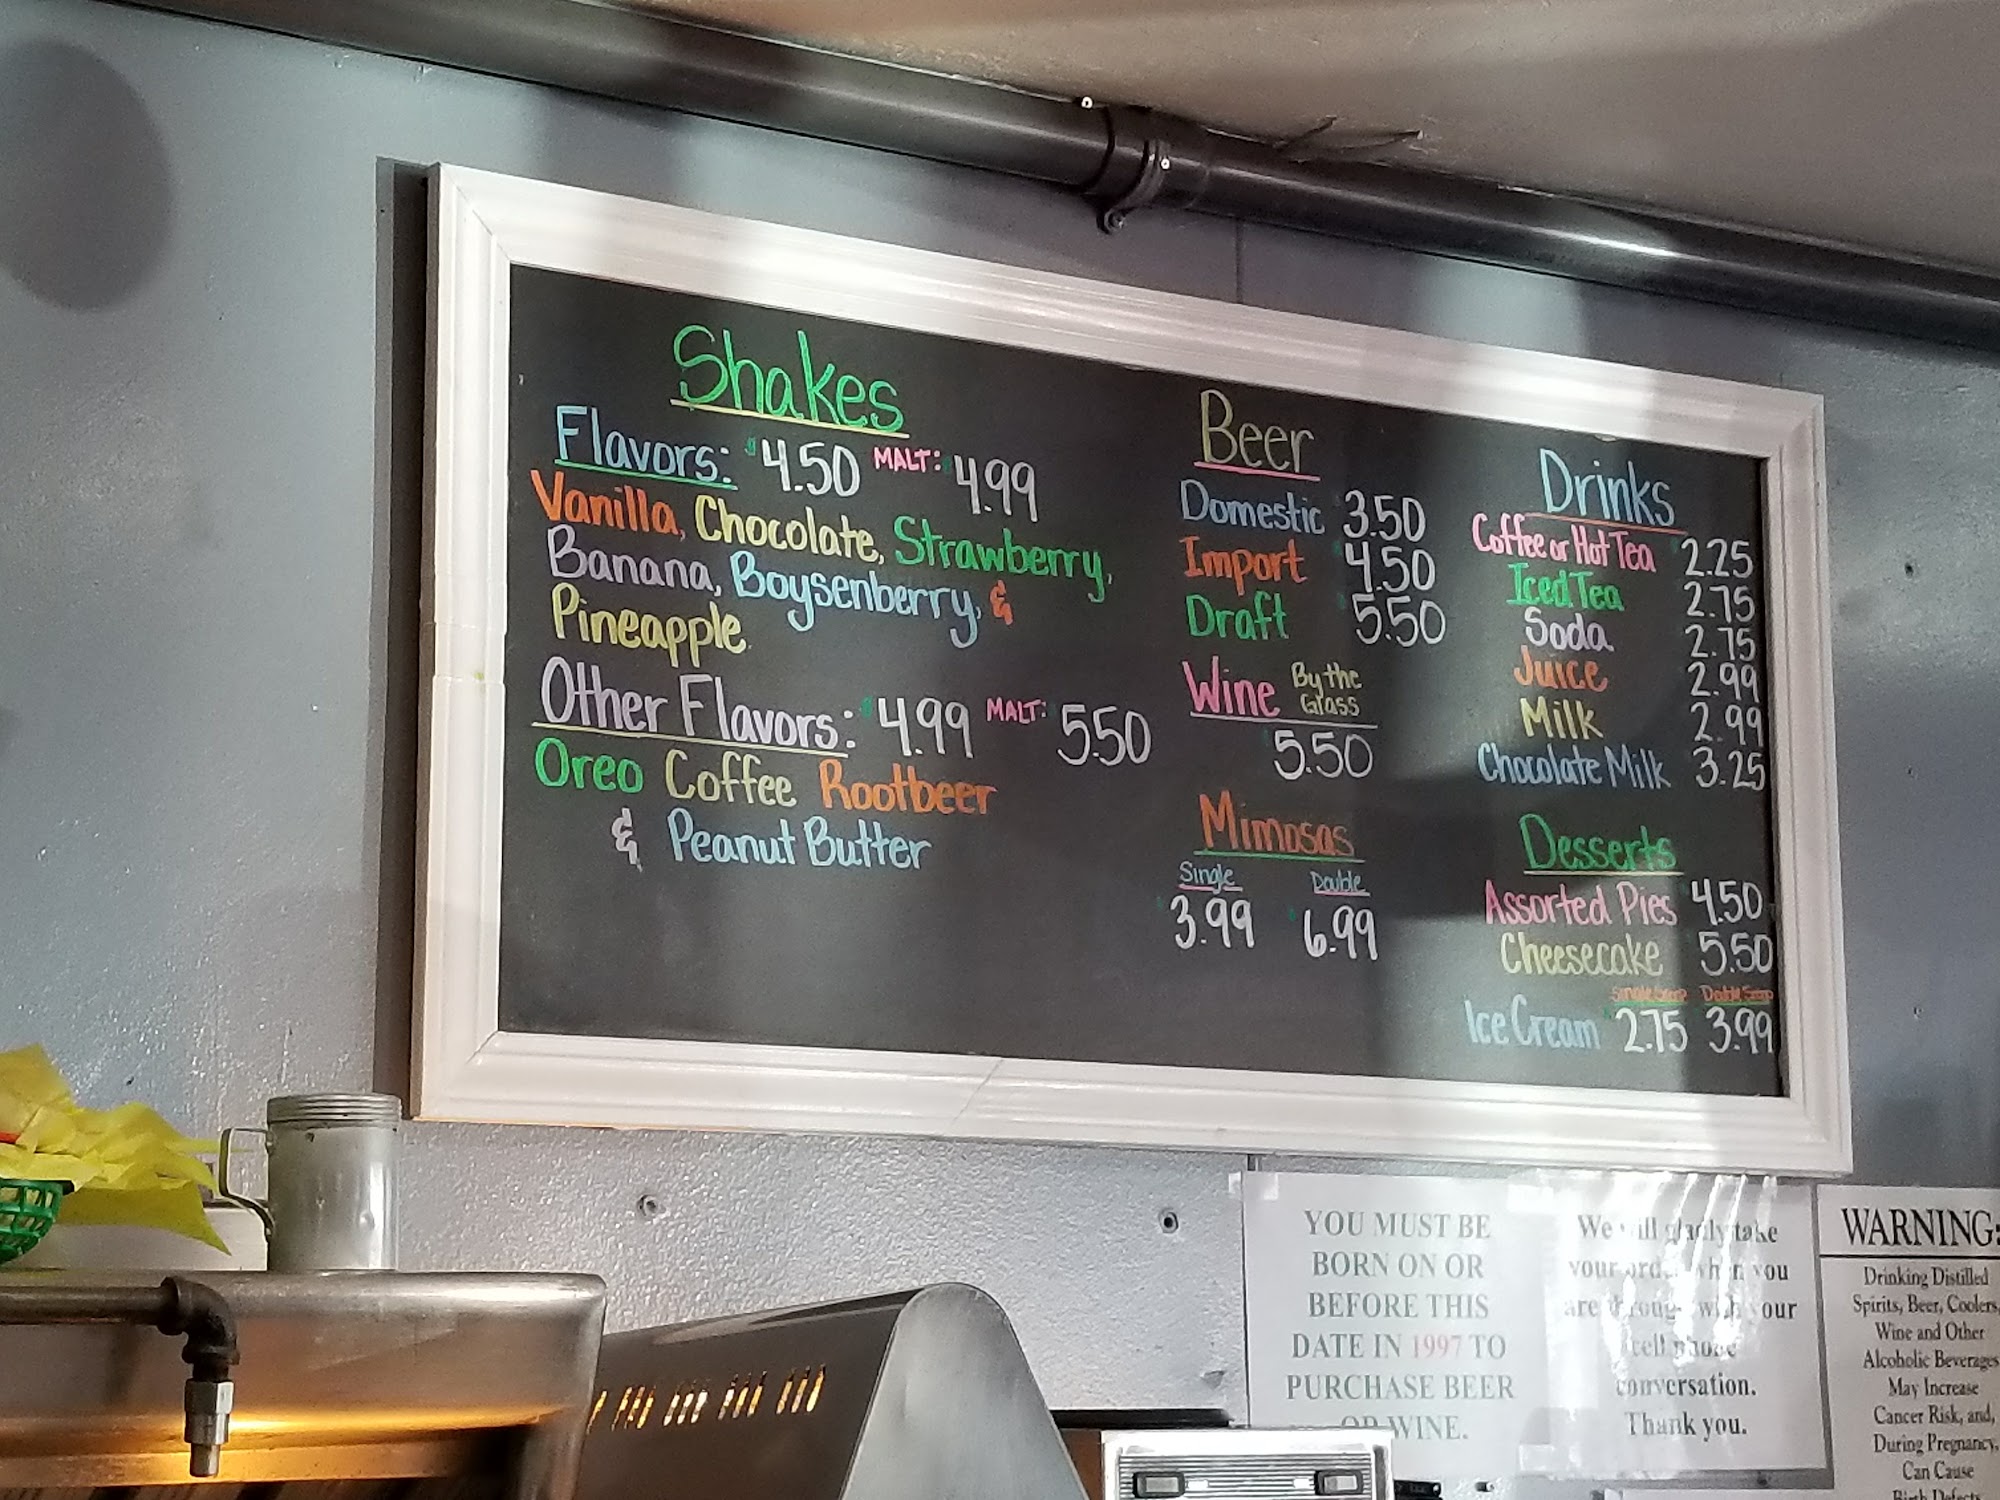 Shakes
Flavors: $4.50 MALT: $4.99
Vanilla, Chocolate, Strawberry,
Banana, Boysenberry, &
Pineapple
Other Flavors: $4.99 MALT: 5.50
Oreo Coffee Rootbeer
& Peanut Butter
Beer
Domestic 3.50
Import 4.50
Draft 5.50
Wine By the Glass
5.50
Mimosas
Single Double
3.99 6.99
Drinks
Coffee or Hot Tea 2.25
Iced Tea 2.75
Soda 2.75
Juice 2.99
Milk 2.99
Chocolate Milk 3.25
Desserts
Assorted Pies 4.50
Cheesecake 5.50
Single Scoop Double Scoop
Ice Cream 2.75 3.99
YOU MUST BE
BORN ON OR
BEFORE THIS
DATE IN 1997 TO
PURCHASE BEER
OR WINE.
We will gladly take
your order when you
are through with your
cell phone
conversation.
Thank you.
WARNING:
Drinking Distilled
Spirits, Beer, Coolers,
Wine and Other
Alcoholic Beverages
May Increase
Cancer Risk, and,
During Pregnancy,
Can Cause
Birth Defects